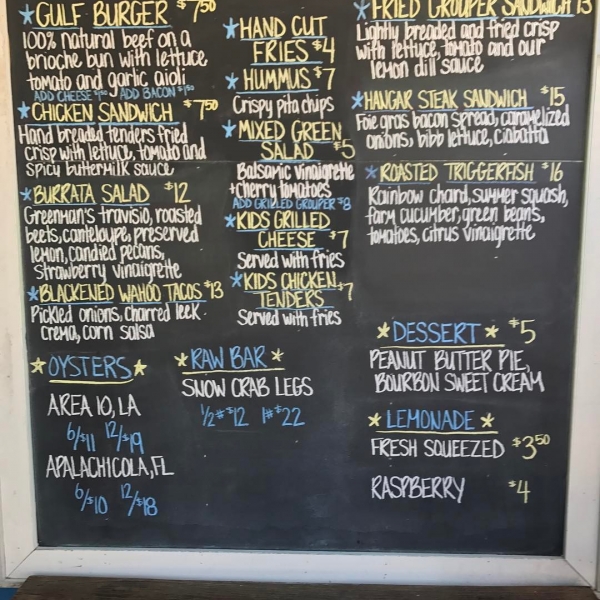 GULF BURGER $7.50
100% natural beef on a
brioche bun with lettuce
tomato and garlic aioli
ADD CHEESE ADD BACON
CHICKEN SANDWICH $7.50
Hand breaded tenders fried
crisp with lettuce, tomato and
spicy buttermilk sauce
BURRATA SALAD $12
Greenman's travisio, roasted
beets, canteloupe, preserved
lemon, candied pecans,
strawberry vinaigrette
BLACKENED WAHOO TACOS $13
Pickled onions, charred leek
crema, corn salsa
OYSTERS
AREA 10, LA
6/$11 12/$19
APALACHICOLA, FL
6/$10 12/$18
HAND CUT
FRIES $4
HUMMUS $7
Crispy pita chips
MIXED GREEN
SALAD $5
Balsamic vinaigrette
+ cherry tomatoes
ADD GRILLED GROUPER $8
KIDS GRILLED
CHEESE $7
Served with fries
KIDS CHICKEN
TENDERS $7
Served with fries
RAW BAR
SNOW CRAB LEGS
1/2# $12 1# $22
FRIED GROUPER SANDWICH 13
Lightly breaded and fried crisp
with lettuce, tomato and our
lemon dill sauce
HANGAR STEAK SANDWICH $15
Foie gras bacon spread, caramelized
onions, bibb lettuce, ciabatta
ROASTED TRIGGERFISH $16
Rainbow chard, summer squash,
farm cucumber, green beans,
tomatoes, citrus vinaigrette
DESSERT $5
PEANUT BUTTER PIE,
BOURBON SWEET CREAM
LEMONADE
FRESH SQUEEZED $3.50
RASPBERRY $4